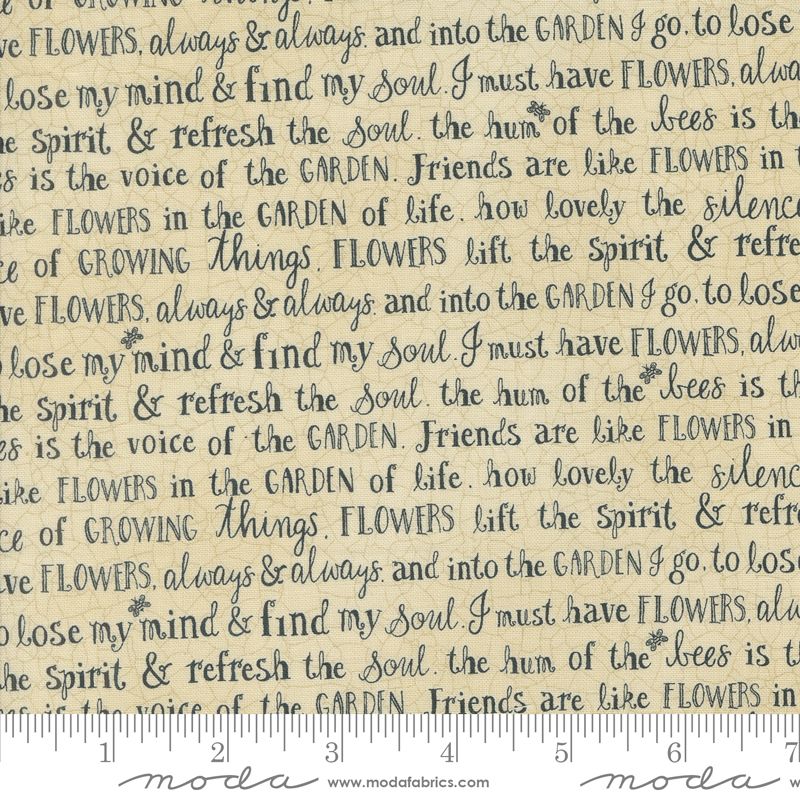 of GROWING things.
ve FLOWERS, always & always. and into the GARDEN I go, to lose
lose my mind & find my soul. I must have FLOWERS, alwa
he spirit & refresh the soul. the hum of the bees is th
es is the voice of the GARDEN. Friends are like FLOWERS in t
ike FLOWERS in the GARDEN of life. how lovely the silence
ce of GROWING things. FLOWERS lift the spirit & refre
ve FLOWERS, always & always. and into the GARDEN I go, to lose
o lose my mind & find my soul. I must have FLOWERS, alw
he spirit & refresh the soul. the hum of the bees is th
es is the voice of the GARDEN. Friends are like FLOWERS in
ike FLOWERS in the GARDEN of life. how lovely the silenc
ce of GROWING things. FLOWERS lift the spirit & refr
ave FLOWERS, always & always. and into the GARDEN I go, to lose
o lose my mind & find my soul. I must have FLOWERS, alw
the spirit & refresh the soul. the hum of the bees is t
es is the voice of the GARDEN. Friends are like FLOWERS in
1 2 3 4 5 6 7
moda www.modafabrics.com moda w